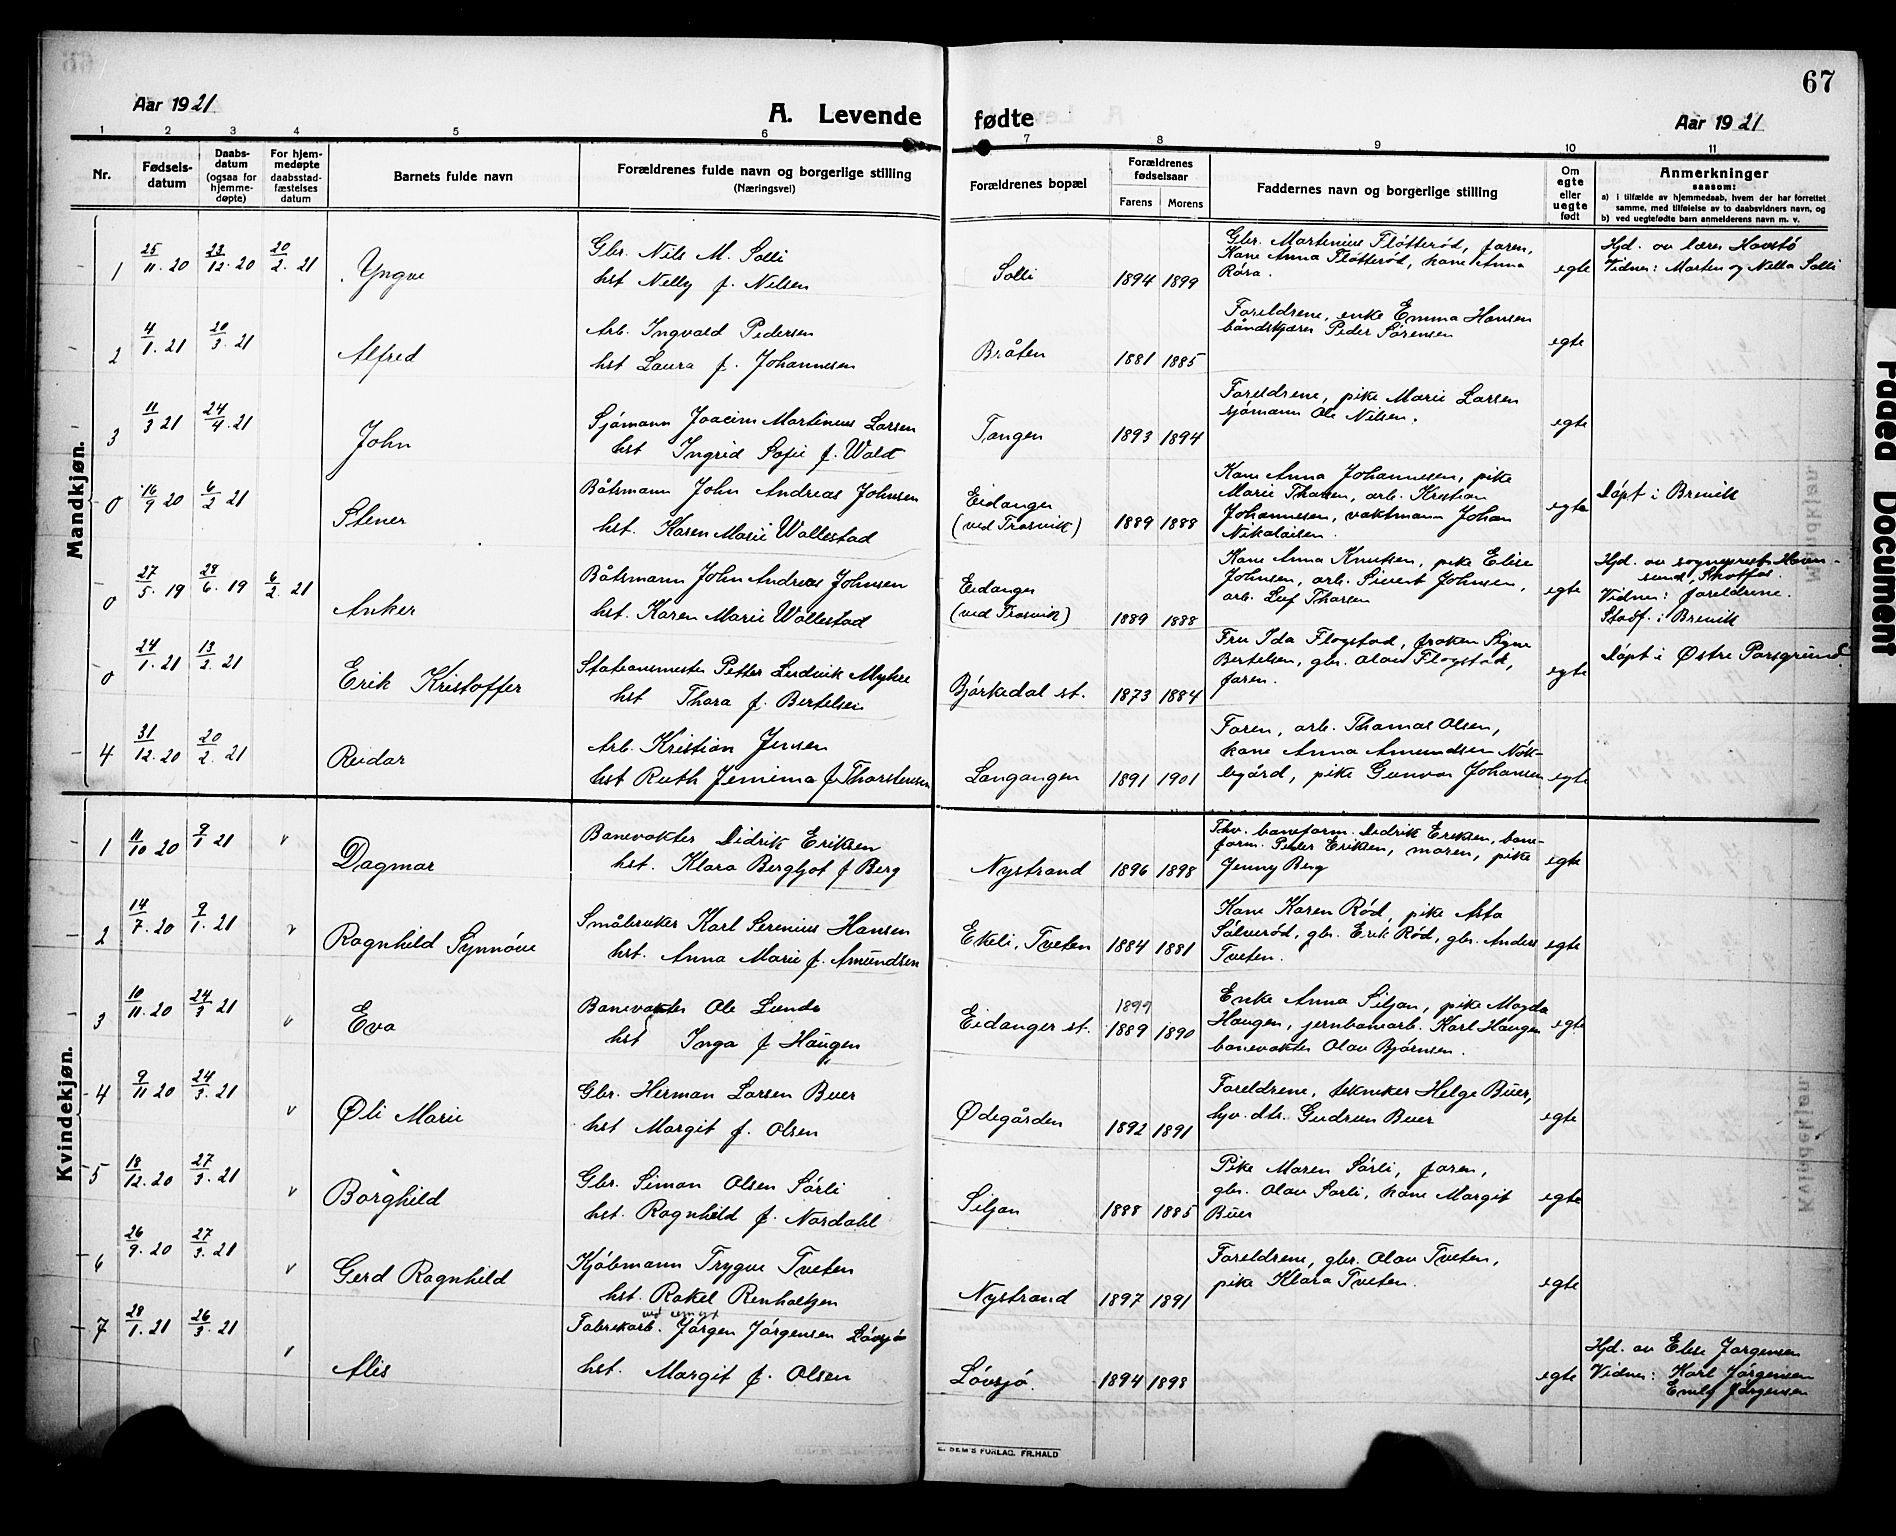 67
Aar 1921
A. Levende fødte
Aar 1921
1 2 3 4 5 6 7 8 9 10 11
Nr.
Fødsels-
datum
Daabs-
datum
(ogsaa for
hjemme-
døpte)
For hjem-
medøpte
daabsstad-
fæstelses
datum
Barnets fulde navn
Forældrenes fulde navn og borgerlige stilling
(Næringsvei)
Forældrenes bopæl
Forældrenes
fødselsaar
Farens Morens
Faddernes navn og borgerlige stilling
Om
egte
eller
uegte
født
Anmerkninger
saasom:
a) i tilfælde av hjemmedaab, hvem der har forrettet
samme, med tilføielse av to daabsvidners navn, og
b) ved uegtefødte barn anmelderens navn m. v.
Mandkjøn.
1 25/11.20 23/12.20 20/2.21 Yngve
Gbr. Nils M. Solli
hst Nelly f. Nelsen
Solli 1894 1899
Gbr. Martinius Fløtterød, faren,
Kone Anna Fløtterød, kone Anna
Røra.
egte
Hjd. av lærer Havstø
Vidner: Marten og Nella Solli
2 4/1.21 20/3.21 Alfred
Arb. Ingvald Pedersen
hst Laura f. Johannesen
Bråten 1881 1885
Foreldrene, enke Emma Hansen
båndskjærer Peder Sørensen
egte
3 11/3 21 24/4.21 John
Sjømann Joacim Martinius Larsen
hst Ingrid Sofie f. Wold
Tangen 1893 1894
Foreldrene, pike Marie Larsen
sjømann Ole Nilsen.
egte
0 16/9 20 6/2 21 Stener
Båtsmann John Andreas Johnsen
hst. Karen Marie Wallestad
Eidanger
(ved Trosvik) 1889 1888
Kone Anna Johannesen, pike
Marie Thorsen, arb. Kristian
Johannesen, vaktmann Johan
Nikolaisen.
egte
Døpt i Brevik
0 27/5.19 28/6.19 6/2.21 Anker
Båtsmann John Andreas Johnsen
hst. Karen Marie Wallestad
Eidanger
(ved Trosvik) 1889 1888
Kone Anna Knutsen, pike Elise
Johnsen, arb. Sivert Johnsen,
arb. Leif Thorsen
egte
Hjd. av sogneprest
Skotfos.
Vidner: foreldrene.
Stadf. i Brevik
0 24/1.21 13/2.21 Erik Kristoffer
Stationsmester Petter Ludvik Myhre
hst Thora f. Bertelsen
Bjørkedal st. 1873 1884
Fru Ida Flogstad, frøken Signe
Bertelsen, gbr. Olav Flogstad,
faren.
egte
Døpt i Østre Porsgrund.
4 31/12.20 20/2.21 Reidar
Arb. Kristian Jensen
hst Ruth Jemima f. Thorstensen
Langangen 1891 1901
Faren, arb. Thomas Olsen,
kone Anna Amundsen Nøk-
legård, pike Gunvor Johansen
egte
Kvindekjøn.
1 11/10 20 9/1 21 v Dagmar
Banevokter Didrik Eriksen
hst. Klara Bergljot f Berg
Nystrand 1896 1898
Thv. baneform. Didrik Eriksen, bane-
form. Peder Eriksen, moren, pike
Jenny Berg
egte
2 14/7.20 9/1.21 v Ragnhild Synnøve
Småbruker Karl Serenius Hansen
hst. Anna Marie f. Amundsen
Ekeli, Tveten 1884 1881
Kone Karen Rød, pike Asta
Sølverød, gbr. Erik Rød, gbr. Anders
Tveten.
egte
3 10/11.20 24/3 21 v Eva
Banevokter Ole Lunde
hst Inga f Haugen
Eidanger st. 1899 1889 1890
Enke Anna Siljan, pike Magda
Haugen, jernbanearb. Karl Haugen
banevokter Olav Bjørnsen.
egte
4 9/11 20 24/3.21 v Øli Marie
Gbr. Herman Larsen Buer
hst Margit f. Olsen
Ødegården 1892 1891
Foreldrene, tekniker Helge Buer,
hjv. dtr. Gudrun Buer
egte
5 18/12.20 27/3.21 v Borghild
Gbr. Simon Olsen Sørli
hst. Ragnhild f. Nordahl
Siljan 1888 1885
Pike Maren Sørli, faren,
gbr. Olav Sørli, kone Margit
Buer
egte
6 26/9.20 27/3.21 v Gerd Ragnhild
Kjøbmann Trygve Tveten
hst. Rakel Renholtzen
Nystrand 1897 1891
Foreldrene, gbr. Olav Tveten,
pike Klara Tveten.
egte
7 28/1.21 26/3.21 v Alis
ved cement
Fabrikarb. Jørgen Jørgensen Løvsjø
hst. Margit f. Olsen
Løvsjø. 1894 1898
egte
Hjd. av Elise Jørgensen
Vidner: Karl Jørgensen
Emily Jørgensen
E. SEM'S FORLAG, FR.HALD
Faded Document